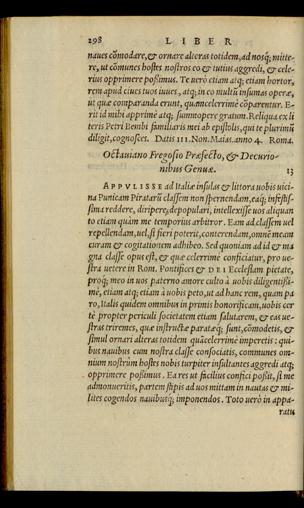 298 LIBER
naues cõmodare, & ornare alteras totidem, ad nosq; mitte-
re, ut cõmunes hostes nostros eo & tutius aggredi, & cele-
rius opprimere possimus. Te uerò etiam atq; etiam hortor,
rem apud ciues tuos iuues, atq; in eo multũ insumas operæ,
ut quæ comparanda erunt, quàmcelerrimè cõparentur. E-
rit id mihi apprimè atq; summopere gratum. Reliqua ex li
teris Petri Bembi familiaris mei ab epistolis, qui te plurimũ
diligit, cognosces. Datis III. Non. Maias. anno 4. Roma.
Octauiano Fregosio Præfecto, & Decurio-
nibus Genuæ. 13
APPVLISSE ad Italiæ insulas & littora uobis uici-
na Punicam Piratarũ classem non spernendam, eaq; infestis-
sima reddere, diripere, depopulari, intellexisse uos aliquan
to etiam quàm me temporius arbitror. Eam ad classem uel
repellendam, uel, si fieri poterit, conterendam, omnẽ meam
curam & cogitationem adhibeo. Sed quoniam ad id & ma
gna classe opus est, & quæ celerrimè conficiatur, pro ue-
stra uetere in Rom. Pontifices & DEI Ecclesiam pietate,
proq; meo in uos paterno amore culto à uobis diligentissi-
mè, etiam atq; etiam à uobis peto, ut ad hanc rem, quam pa
ro, Italis quidem omnibus in primis honorificam, uobis cer
tè propter periculi societatem etiam salutarem, & eas ue-
stras triremes, quæ instructæ paratæq; sunt, cõmodetis, &
simul ornari alteras totidem quàcelerrimè imperetis: qui-
bus nauibus cum nostra classe consociatis, communes om-
nium nostrũm hostes nobis turpiter insultantes aggredi atq;
opprimere possimus. Ea res ut facilius confici possit, si me
admonueritis, partem stipis ad uos mittam in nautas & mi-
lites cogendos nauibusq; imponendos. Toto uerò in appa-
ratu